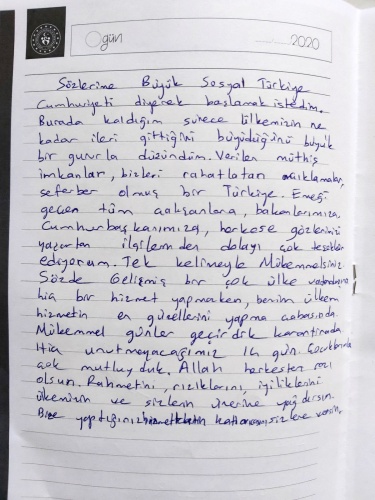 gün
2020
Sözlerime Büyük Sosyal Türkiye
Cumhuriyeti diyerek başlamak istedim.
Burada kaldığım sürece Ülkemizin ne
kadar ileri gittiğini büyüdüğünü büyük
bir gururla düzündüm. Verilen müthiş
imkanlar, bizleri rahatlatan açıklamalar,
seferber olmuş bir Türkiye. Emeği
geçen tüm çalışanlara, bakanlarımıza,
Cumhurbaşkanımıza, herkese gözlerimizi
yaşartan ilgilerinden dolayı çok teşekkür
ediyorum. Tek kelimeyle Mükemmelsiniz
Sözde Gelişmiş bir çok ülke vatandaşına
hiç bir hizmet yapmarken, benim ülkem
hizmetin en güzellerini yapma çabasında.
Mükemmel günler geçirdik karantinada
Hiç unutmayacağımız 14 gün. Çocuklarımla
çok mutluyduk. Allah herkesten razı
olsun. Rahmetini, rızıklarını, iyiliklerini
ülkemizin ve sizlerin üzerine yağdırsın.
Bize yaptığınız hizmetlerin sizlere versin.